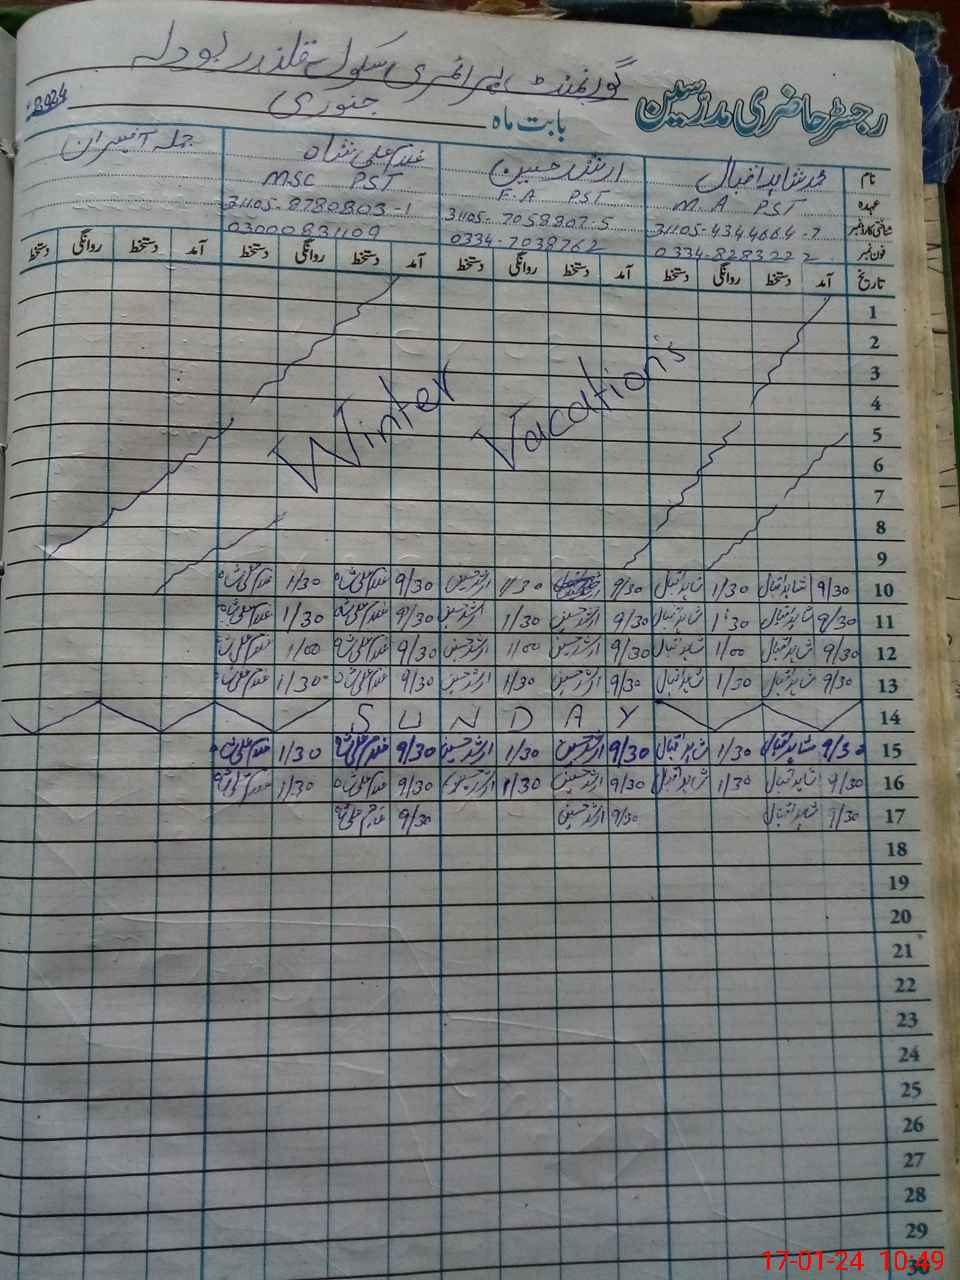 گورنمنٹ پرائمری سکول قلندر بودلہ
رجسٹر حاضری مدرسین بابت ماہ جنوری 2024
نام محمد شاہد اقبال ارشد حسین غلام علی شاہ جملہ آفیسران
عہدہ M.A PST F.A PST MSC PST
شناختی کارڈ نمبر 31105-4344664-7 31105-7058807-5 31105-8780803-1
فون نمبر 0334-8283222 0334-7038762 03000831109
تاریخ آمد دستخط روانگی دستخط آمد دستخط روانگی دستخط آمد دستخط روانگی دستخط آمد دستخط روانگی دستخط
1
2
3
4
Winter Vacation's
5
6
7
8
9
10 9/30 شاہد اقبال 1/30 شاہد اقبال 9/30 1/30 ارشد حسین 9/30 غلام علی شاہ 1/30 غلام علی شاہ
11 9/30 شاہد اقبال 1:30 شاہد اقبال 9/30 ارشد حسین 1/30 ارشد حسین 9/30 غلام علی شاہ 1/30 غلام علی شاہ
12 9/30 شاہد اقبال 1/00 شاہد اقبال 9/30 ارشد حسین 1/00 ارشد حسین 9/30 غلام علی شاہ 1/00 غلام علی شاہ
13 9/30 شاہد اقبال 1/30 شاہد اقبال 9/30 ارشد حسین 1/30 ارشد حسین 9/30 غلام علی شاہ 1/30 غلام علی شاہ
14 SUNDAY
15 9/30 شاہد اقبال 1/30 شاہد اقبال 9/30 ارشد حسین 1/30 ارشد حسین 9/30 غلام علی شاہ 1/30 غلام علی شاہ
16 9/30 شاہد اقبال 1/30 شاہد اقبال 9/30 ارشد حسین 1/30 ارشد حسین 9/30 غلام علی شاہ 1/30 غلام علی شاہ
17 9/30 شاہد اقبال 9/30 ارشد حسین 9/30 غلام علی شاہ
18
19
20
21
22
23
24
25
26
27
28
29
30
17-01-24 10:49